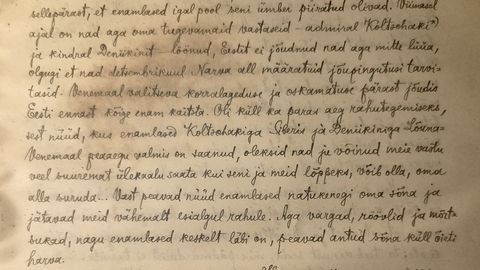 sellepärast, et enamlased igal pool seni ümber piiratud olivad. Viimasel
ajal on nad aga oma tugevamaid vastaseid - admiral Koltschaki
ja kindral Denikinit - löönud, Eestit ei jõudnud nad aga mitte lüüa,
olgugi et nad detsembrikuul Narva all määratuid jõupingutusi tarvi-
tasid. Venemaal valitseva korralageduse ja oskamatuse pärast jõudis
Eesti ennast kõige enam kaitsta. Oli küll ka paras aeg rahutegemiseks,
sest nüüd, kus enamlased Koltschakiga Siberis ja Denikiniga Lõuna-
Venemaal peaaegu valmis on saanud, oleksid nad ju võinud meie vastu
veel suuremat ülekaalu saata kui seni ja meid lõppeks, võib olla, oma
alla suruda... Vast peavad nüüd enamlased natukenegi oma sõna ja
jätavad meid vähemalt esialgul rahule. Aga vargad, röövlid ja mõrt-
sukad, nagu enamlased keskelt läbi on, peavad antud sõna küll õieti
harva.